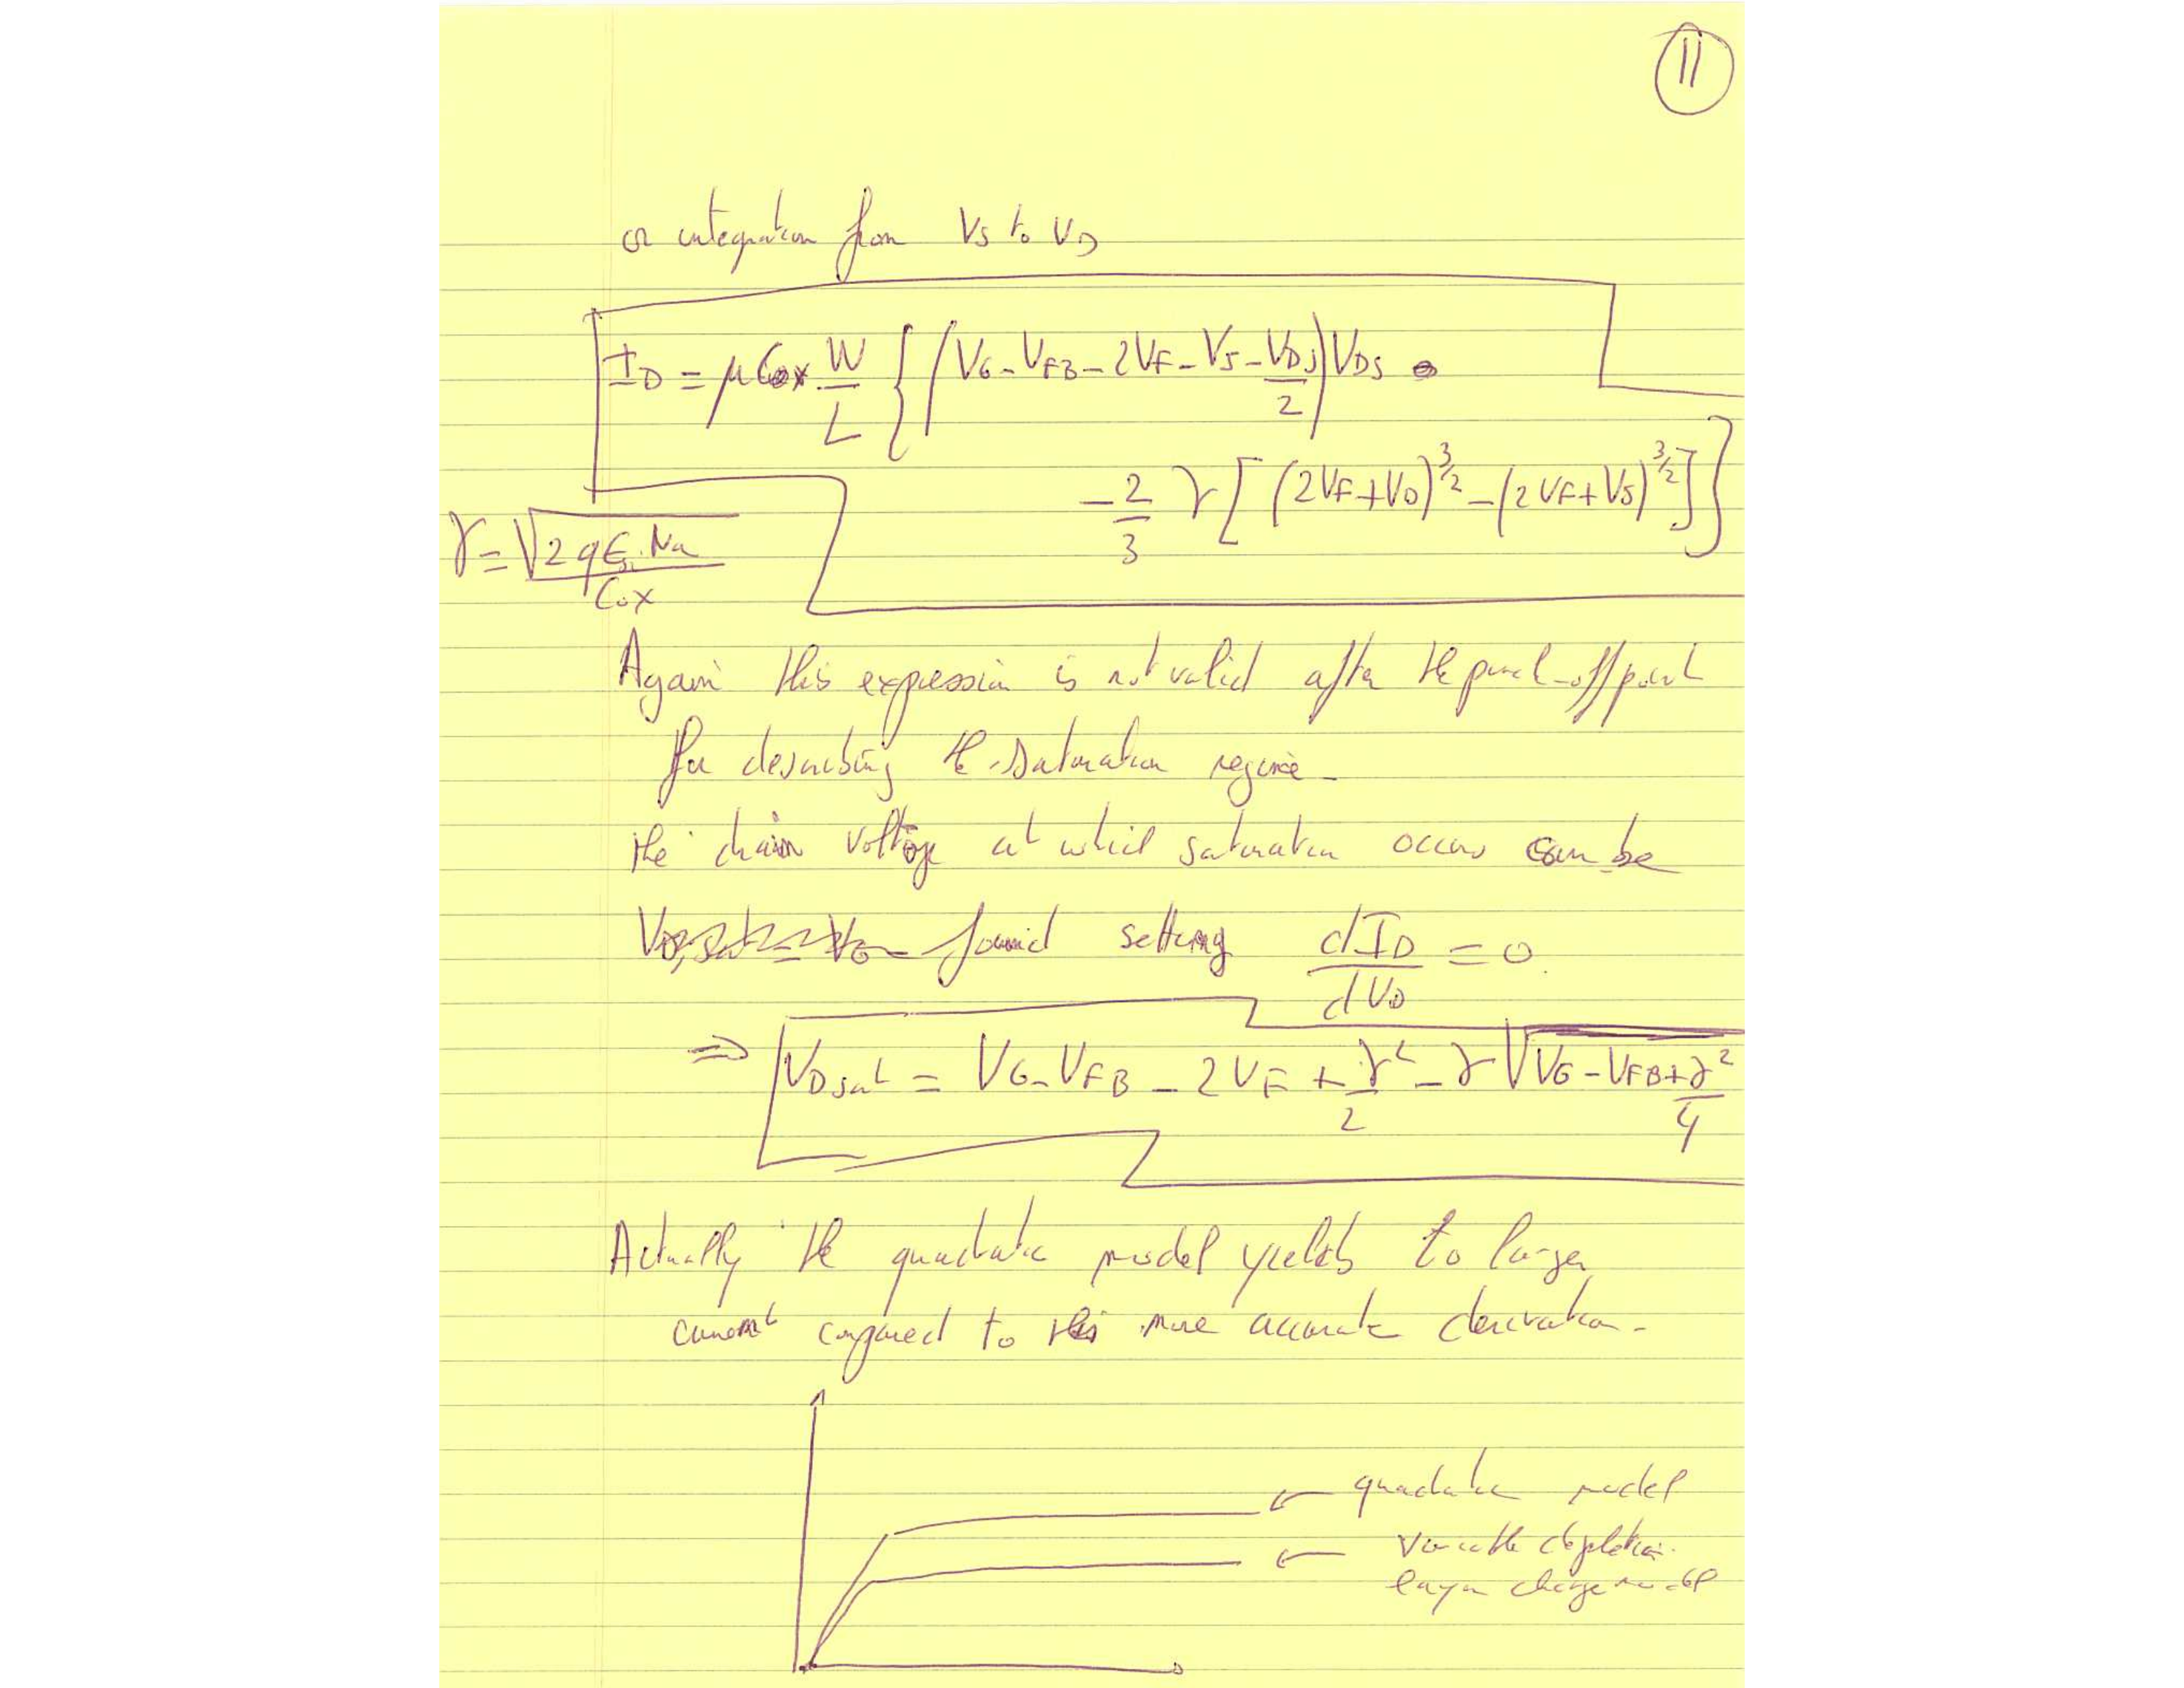 11
or integration from VS to VD
ID = μ Cox W/L { (VG - VFB - 2VF - VS - VDS/2) VDS
- 2/3 γ [ (2VF + VD)^3/2 - (2VF + VS)^3/2 ] }
γ = √(2 q εsi Na) / Cox
Again this expression is not valid after the pinch-off point
for describing the saturation regime -
the drain voltage at which saturation occurs can be
found setting dID/dVD = 0.
⇒ VDsat = VG - VFB - 2VF + γ²/2 - γ √(VG - VFB + γ²/4)
Actually the quadratic model yields to larger
current compared to this more accurate derivation -
← quadratic model
← Variable depletion
layer charge model